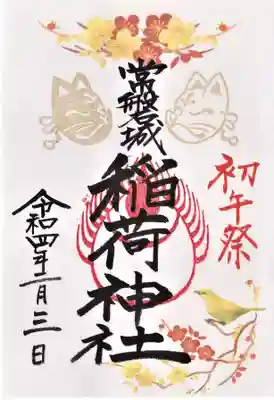 初午祭
常磐城
稲荷神社
令和四年二月三日